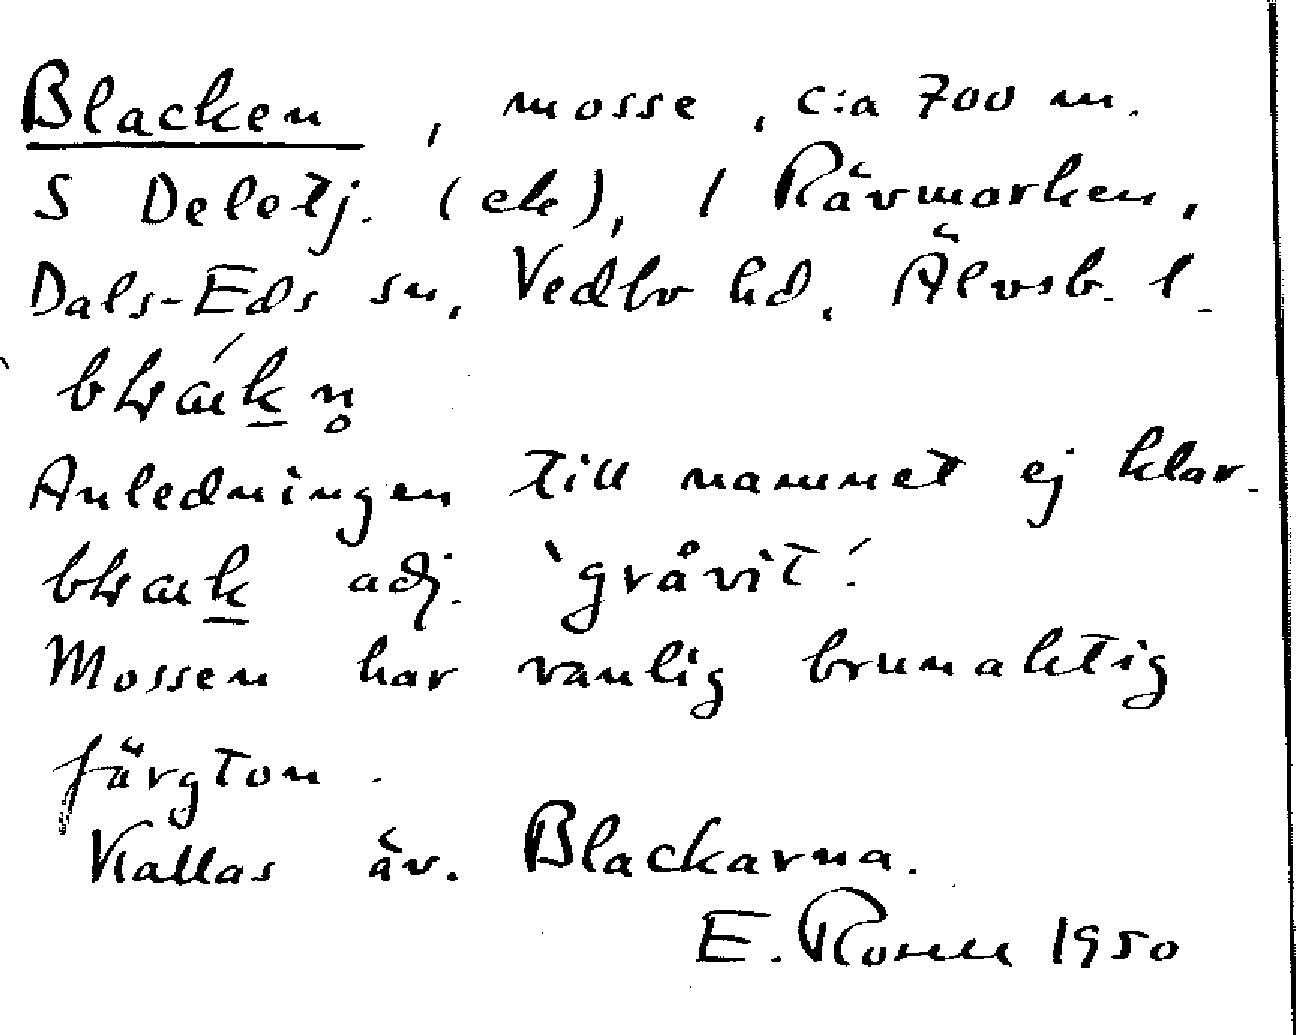 Blacken, mosse, c:a 700 m.
S Deletj. (ek), i Rävmarken,
Dals-Eds sn, Vedbo hd, Älvsb. l.
Anledningen till namnet ej klar.
adj. 'gråvit'.
Mossen har vanlig brunaktig
färgton.
Kallas äv. Blackarna.
E. Rosell 1950